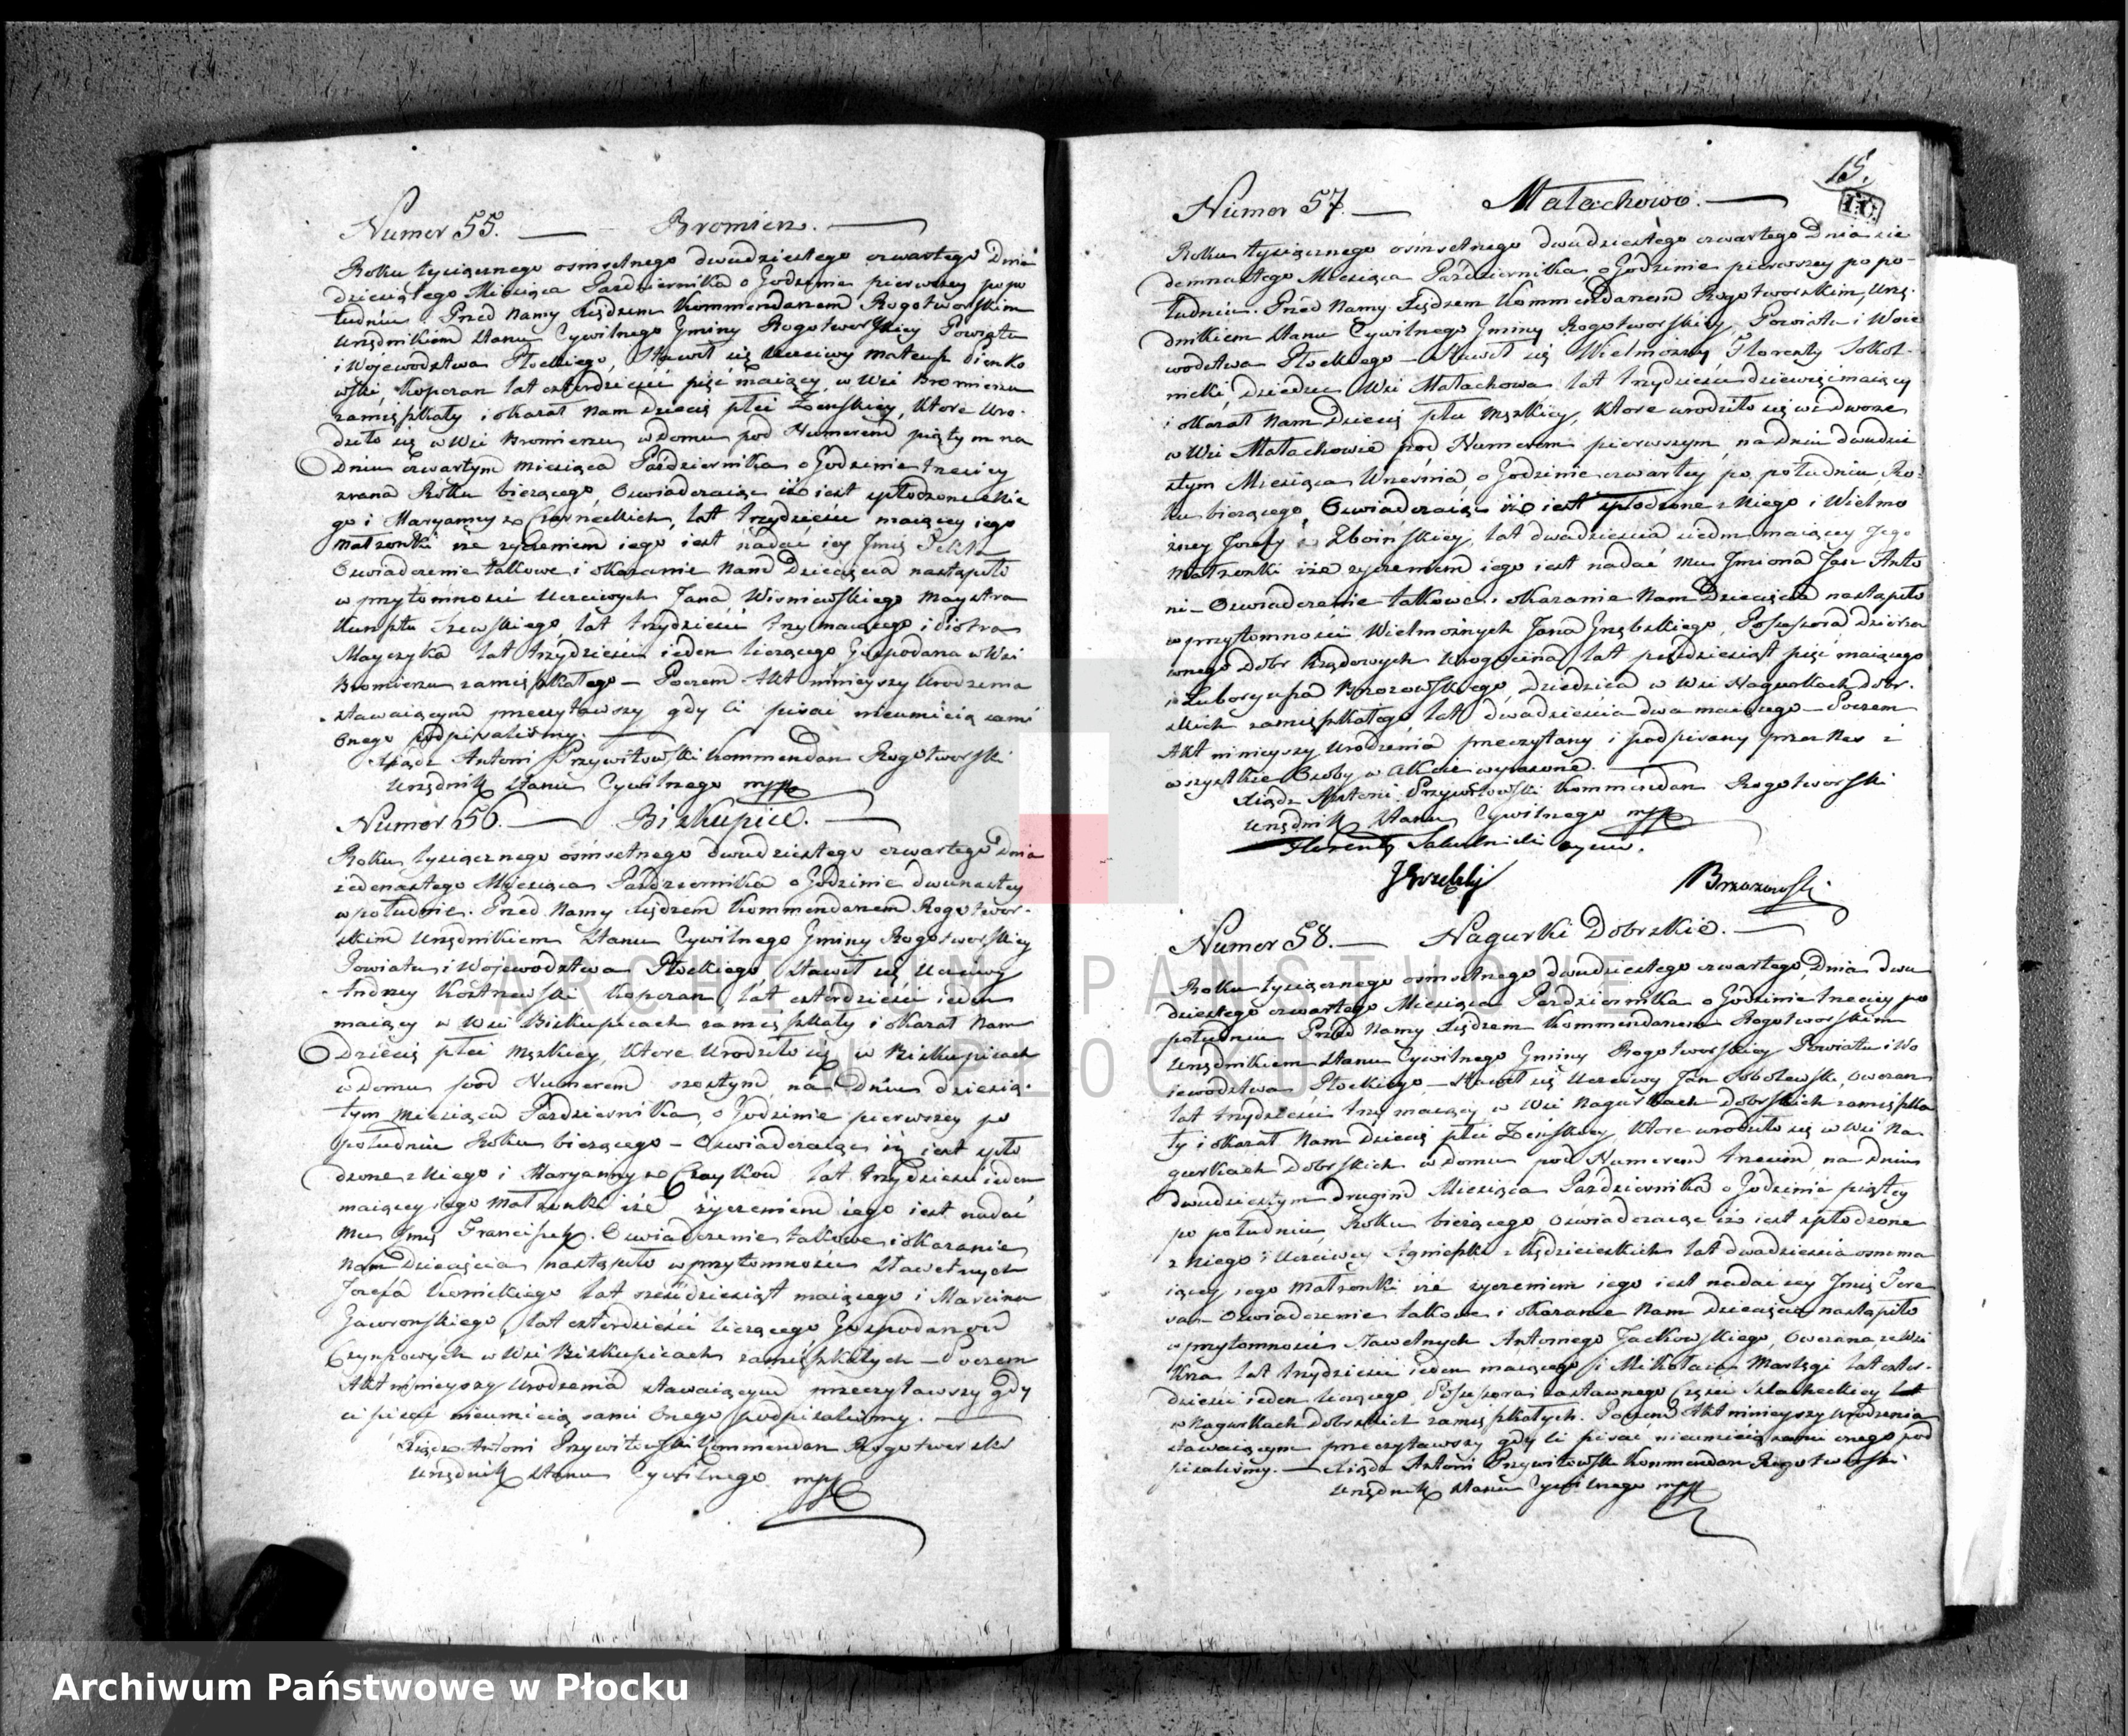 Numer 55. Bromierz.
Roku tysiącznego ośmsetnego dwudziestego czwartego Dnia
dziesiątego Miesiąca Pazdziernika o Godzinie pierwszey popo
łudniu. Przed Namy Xiędzem Kommendarzem Rogotworskim
Urzędnikiem Stanu Cywilnego Gminy Rogotworskiey Powiatu
i Wojewodztwa Płockiego, Stawił się Uczciwy Mateusz Sienko
wski, Kopczarz lat czterdzieści pięć maiący, w Wsi Bromierzu
zamięszkały i okazał Nam Dziecię płci Żeńskiey, Ktore Uro-
dziło się w Wsi Bromierzu w domu pod Numerem piątym na
Dniu czwartym Miesiąca Pazdziernika o Godzinie trzeciey
zrana Roku bieżącego, Oswiadczaiąc iż iest spłodzone z Nie
go i Maryanny z Czarneckich, lat trzydzieści maiącey iego
Małzonki iże zyczeniem iego iest nadać iey Jmię Tekla
Oswiadczenie takowe i okazanie Nam Dziecięcia nastąpiło
w przytomności Uczciwych Jana Wisniewskiego Maystra
Kunsztu Szewskiego lat trzydzieści trzy maiącego i Piotra
Mayczyka lat trzydzieści ieden liczącego Gospodarza w Wsi
Bromierzu zamięszkałego — Poczem Akt ninieyszy Urodzenia
stawaiącym przeczytawszy gdy ci pisać nieumieią sami
Onego podpisaliśmy.
Xiądz Antoni Przywitowski Kommendarz Rogotworski
Urzędnik Stanu Cywilnego mpp
Numer 56. Biskupice.
Roku tysiącznego ośmsetnego dwudziestego czwartego Dnia
iedenastego Miesiąca Pazdziernika o Godzinie dwunastey
w południe. Przed Namy Xiędzem Kommendarzem Rogotwor-
skim Urzędnikiem Stanu Cywilnego Gminy Rogotworskiey
Powiatu i Wojewodztwa Płockiego Stawił się Uczciwy
Andrzey Kopczarz lat czterdzieści ieden
maiący w Wsi Biskupicach zamięszkały i okazał Nam
Dziecię płci Męzkiey, Ktore Urodziło się w Biskupicach
w domu pod Numerem szostym na Dniu dziesią-
tym Miesiąca Pazdziernika, o Godzinie pierwszey po
południu Roku bieżącego — Oswiadczaiąc iż iest spło
dzone z Niego i Maryanny z Czaykow lat trzydzieści ieden
maiącey iego Małzonki iże życzeniem iego iest nadać
mu Jmię Franciszek. Oswiadczenie takowe i okazanie
Nam Dziecięcia nastąpiło w przytomności Sławetnych
Jozefa Kornickiego lat sześćdziesiąt maiącego i Marcina
Gaworskiego, lat czterdzieści liczącego Gospodarzow
Czynszowych w Wsi Biskupicach zamięszkałych — Poczem
Akt ninieyszy Urodzenia stawaiącym przeczytawszy gdy
ci pisać nieumieią sami Onego podpisaliśmy.
Xiądz Antoni Przywitowski Kommendarz Rogotworski
Urzędnik Stanu Cywilnego mpp
15.
Numer 57. Małachowo.
Roku tysiącznego ośmsetnego dwudziestego czwartego Dnia sie
demnastego Miesiąca Pazdziernika, o Godzinie pierwszey po po-
łudniu. Przed Namy Xiędzem Kommendarzem Rogotworskim, Urzę-
dnikiem Stanu Cywilnego Gminy Rogotworskiey, Powiatu i Woie
wodztwa Płockiego — Stawił się Wielmożny Florenty Sokol-
nicki, dziedzic Wsi Małachowa lat trzydzieści dziewięć maiący
i okazał Nam Dziecię płci męzkiey, Ktore urodziło się we dworze
w Wsi Małachowie pod Numerem pierwszym, na Dniu dwudzie
stym Miesiąca Wrzesnia o Godzinie czwartey po południu Ro-
ku bieżącego, Oswiadczaiąc iże iest spłodzone z Niego i Wielmo
żney Jozefy z Zboińskiey, lat dwadziescia siedm maiącey Jego
Małzonki iże zyczeniem iego iest nadać mu Jmiona Jan Anto
ni — Oswiadczenie takowe i okazanie Nam Dziecięcia nastąpiło
w przytomności Wielmożnych Jana Grzębskiego, Possessora dzierża
wnego Dobr Rządowych lat pięćdziesiąt pięć maiącego
i Liboryusza Brzozowskiego, Dziedzica w Wsi Nagurkach dobr-
skich zamięszkałego lat dwadziescia dwa maiącego — Poczem
Akt ninieyszy Urodzenia przeczytany i podpisany przez Nas i
wszystkie Osoby w Akcie wyrażone.
Xiądz Antoni Przywitowski Kommendarz Rogotworski
Urzędnik Stanu Cywilnego mpp
Florenty Sokolnicki oyciec.
JGrzębski Brzozowski
Numer 58. Nagurki Dobrskie.
Roku tysiącznego ośmsetnego dwudziestego czwartego, Dnia dwu
dziestego czwartego Miesiąca Pazdziernika o Godzinie trzeciey po
południu Przed Namy Xiędzem Kommendarzem Rogotworskim
Urzędnikiem Stanu Cywilnego Gminy Rogotworskiey Powiatu i Wo
jewodztwa Płockiego — Stawił się Uczciwy Jan Sobolewski, Owczarz
lat trzydzieści trzy maiący w Wsi Nagurkach Dobrskich zamięszka
ły i okazał Nam Dziecię płci Żeńskiey, Ktore urodziło się w Wsi Na
gurkach Dobrskich w domu pod Numerem trzecim, na Dniu
dwudziestym drugim Miesiąca Pazdziernika o Godzinie piątey
po południu Roku bieżącego Oświadczaiąc iże iest spłodzone
z Niego i Uczciwey Agnieszki z Kędzierskich lat dwadziescia osm ma
iącey iego Małzonki iże zyczeniem iego iest nadać iey Jmię Tere
ssa — Oswiadczenie takowe i okazanie Nam Dziecięcia nastąpiło
w przytomności Sławetnych Antoniego Jackowskiego, Owczarza ze Wsi
lat trzydzieści ieden maiącego i Mikołaia lat czter-
dzieści ieden liczącego, Possessora zastawnego Części Szlacheckiey
w Nagurkach Dobrskich zamięszkałych. Poczem Akt ninieyszy Urodzenia
stawaiącym przeczytawszy gdy ci pisać nieumieią sami onego pod
pisaliśmy. — Xiądz Antoni Przywitowski Kommendarz Rogotworski
Urzędnik Stanu Cywilnego mpp
ARCHIWUM PAŃSTWOWE
W PŁOCKU
Archiwum Państwowe w Płocku